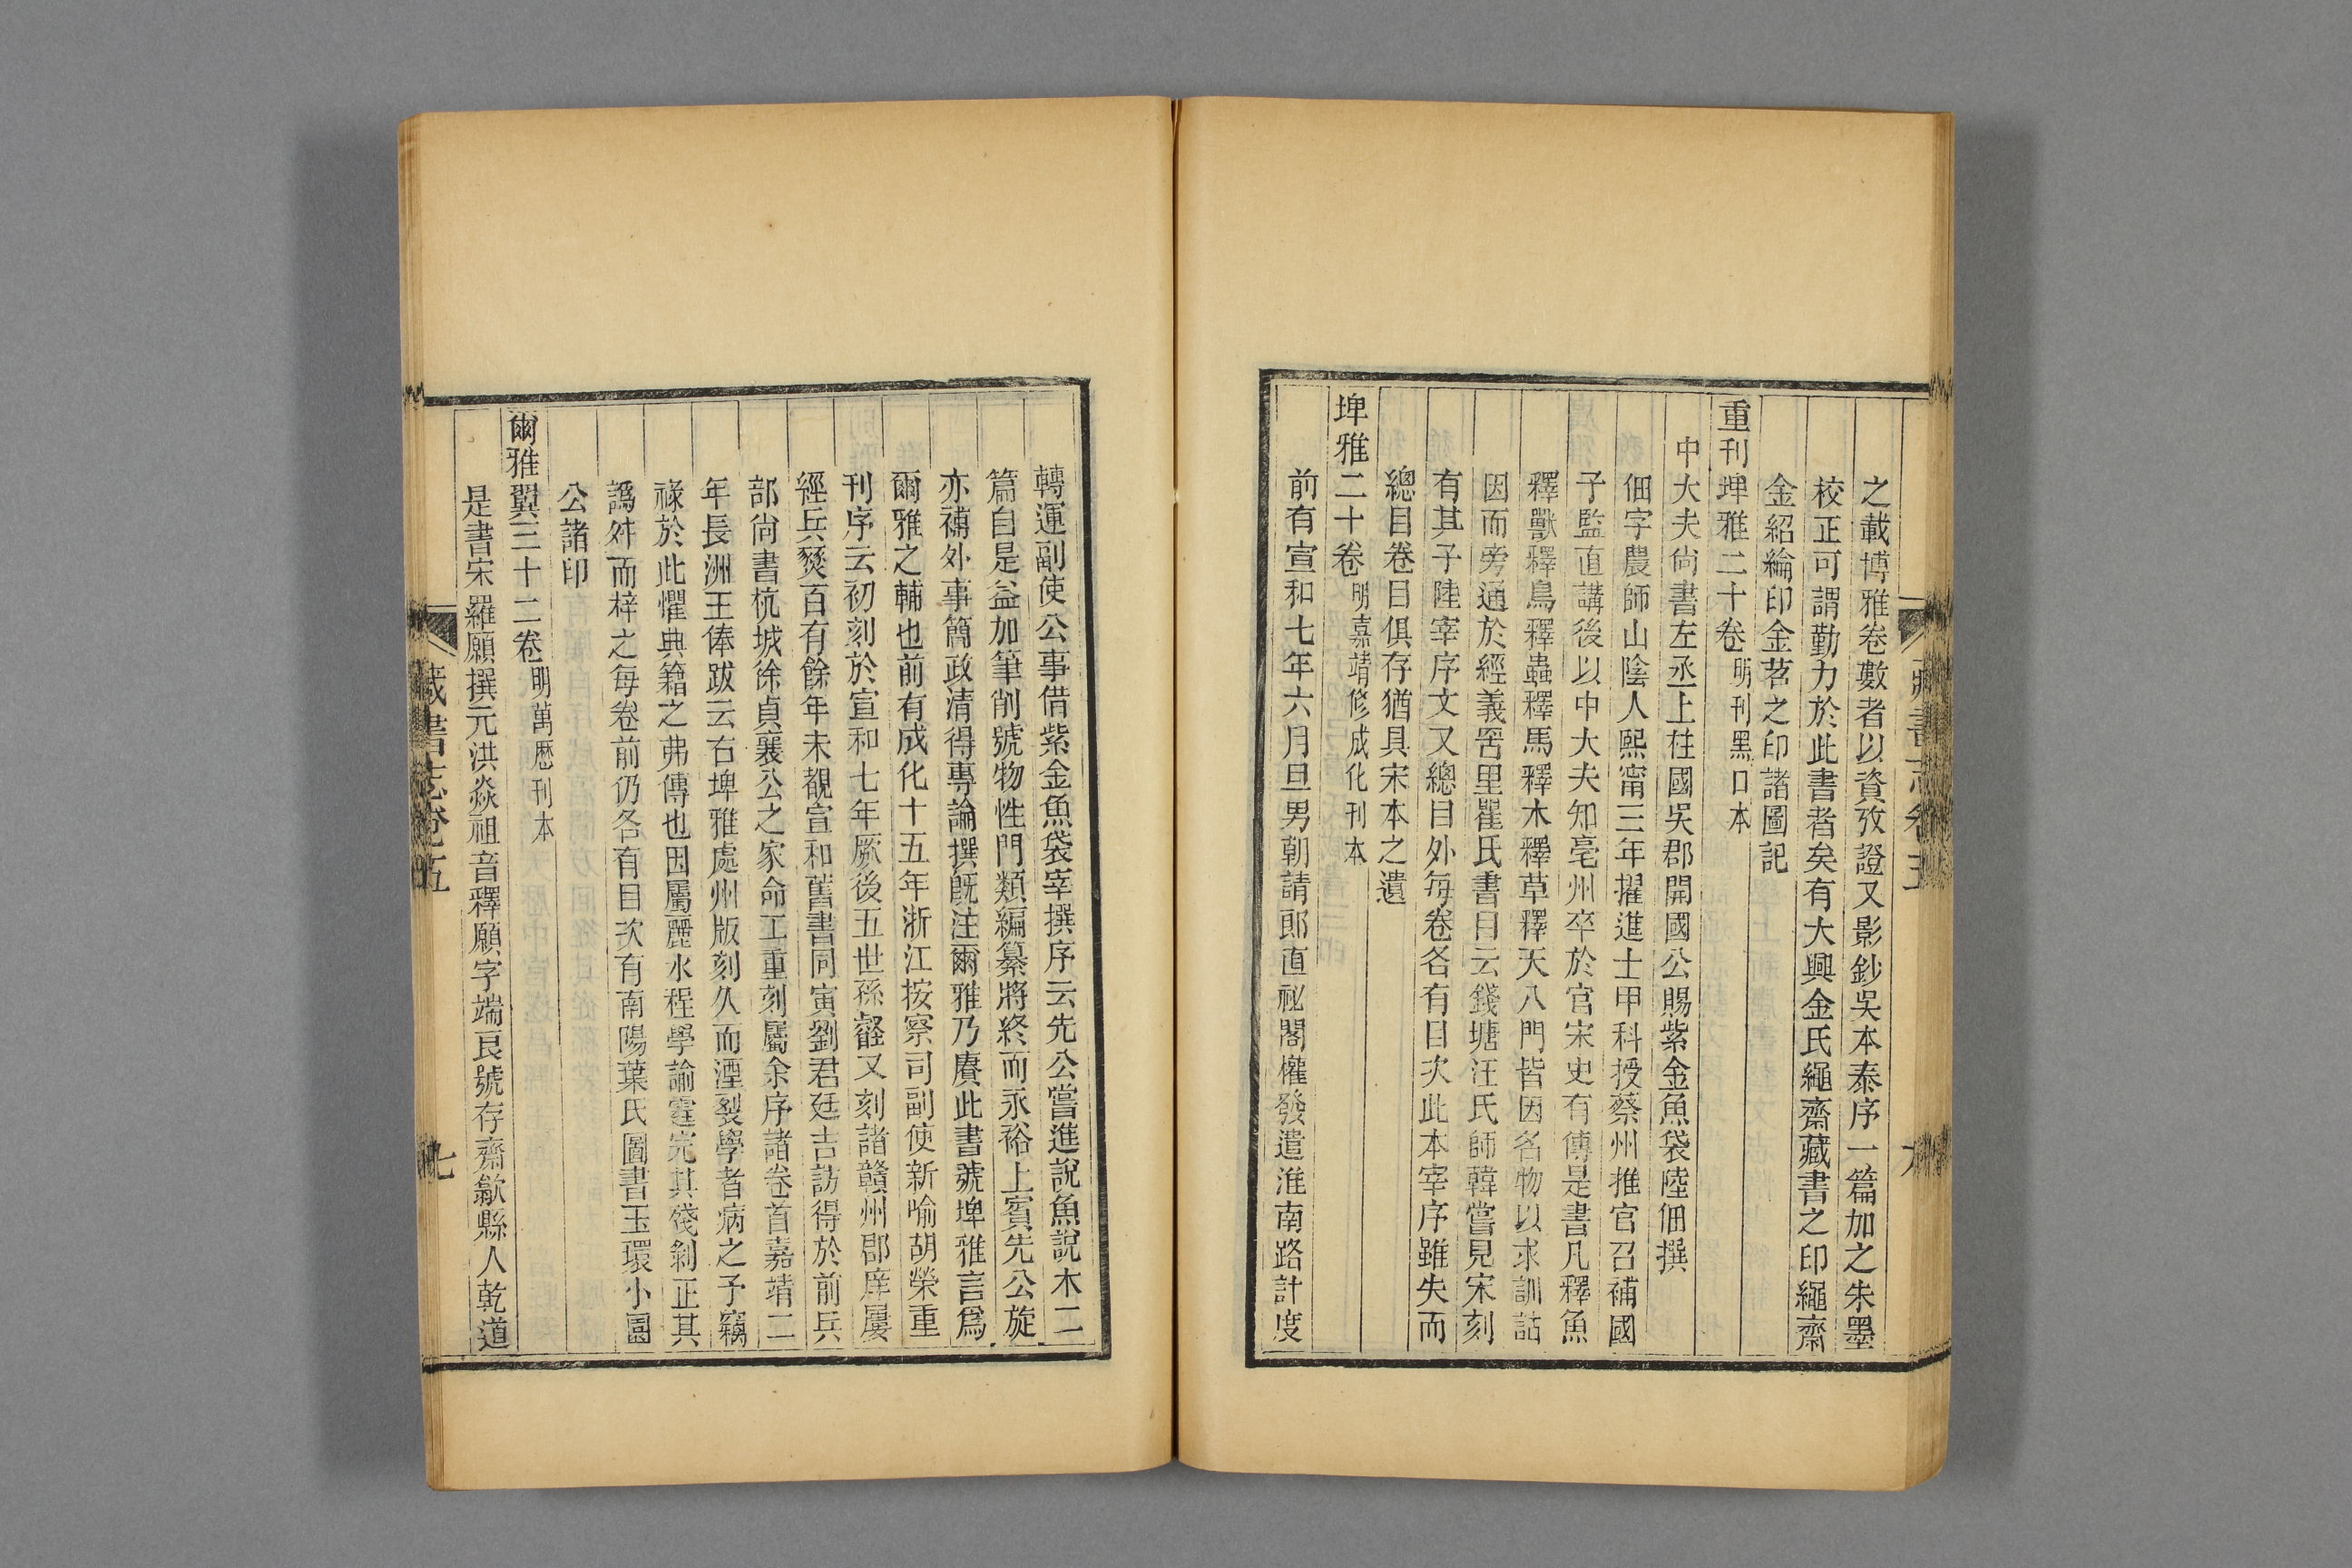 藏書志卷五
六
之載博雅卷數者以資攷證又影鈔吳本泰序一篇加之朱墨
校正可謂勤力於此書者矣有大興金氏繩齋藏書之印繩齋
金紹綸印金茗之印諸圖記
重刊埤雅二十卷明刊黑口本
中大夫尙書左丞上柱國吳郡開國公賜紫金魚袋陸佃撰
佃字農師山陰人熙甯三年擢進士甲科授蔡州推官召補國
子監直講後以中大夫知亳州卒於官宋史有傳是書凡釋魚
釋獸釋鳥釋蟲釋馬釋木釋草釋天八門皆因名物以求訓詁
因而旁通於經義罟里瞿氏書目云錢塘汪氏師韓嘗見宋刻
有其子陸宰序文又總目外每卷各有目次此本宰序雖失而
總目卷目俱存猶具宋本之遺
埤雅二十卷明嘉靖修成化刊本
前有宣和七年六月旦男朝請郎直祕閣權發遣淮南路計度
轉運副使公事借紫金魚袋宰撰序云先公嘗進說魚說木二
篇自是益加筆削號物性門類編纂將終而永裕上賓先公旋
亦補外事簡政清得專論撰旣注爾雅乃賡此書號埤雅言爲
爾雅之輔也前有成化十五年浙江按察司副使新喻胡榮重
刊序云初刻於宣和七年厥後五世孫壡又刻諸贛州郡庠屢
經兵燹百有餘年未覩宣和舊書同寅劉君廷吉訪得於前兵
部尙書杭城徐貞襄公之家命工重刻屬余序諸卷首嘉靖二
年長洲王俸跋云右埤雅處州版刻久而湮裂學者病之予竊
祿於此懼典籍之弗傳也因屬麗水程學諭霆完其殘剜正其
譌舛而梓之每卷前仍各有目次有南陽葉氏圖書玉環小圃
公諸印
爾雅翼三十二卷明萬歷刊本
是書宋羅願撰元洪焱祖音釋願字端良號存齋歙縣人乾道
藏書志卷五
七